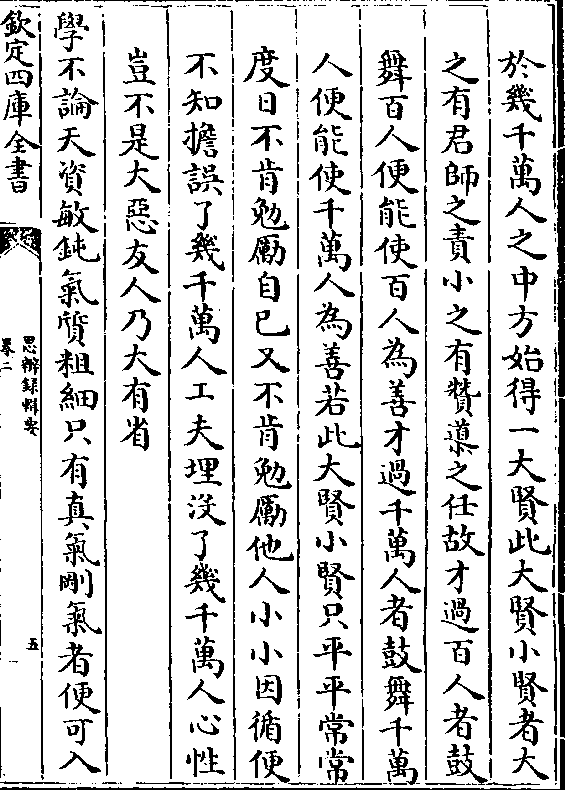 於幾千萬人之中方始得一大賢此大賢小賢者大
之有君師之責小之有贊導之任故才過百人者鼓
舞百人便能使百人為善才過千萬人者鼓舞千萬
人便能使千萬人為善若此大賢小賢只平平常常
度日不肯勉厲自己又不肯勉厲他人小小因循便
不知擔誤了幾千萬人工夫埋沒了幾千萬人心性
豈不是大惡友人乃大有省
學不論天資敏鈍氣質粗細只有真氣剛氣者便可入
欽定四庫全書
思辨録輯要
卷二
五